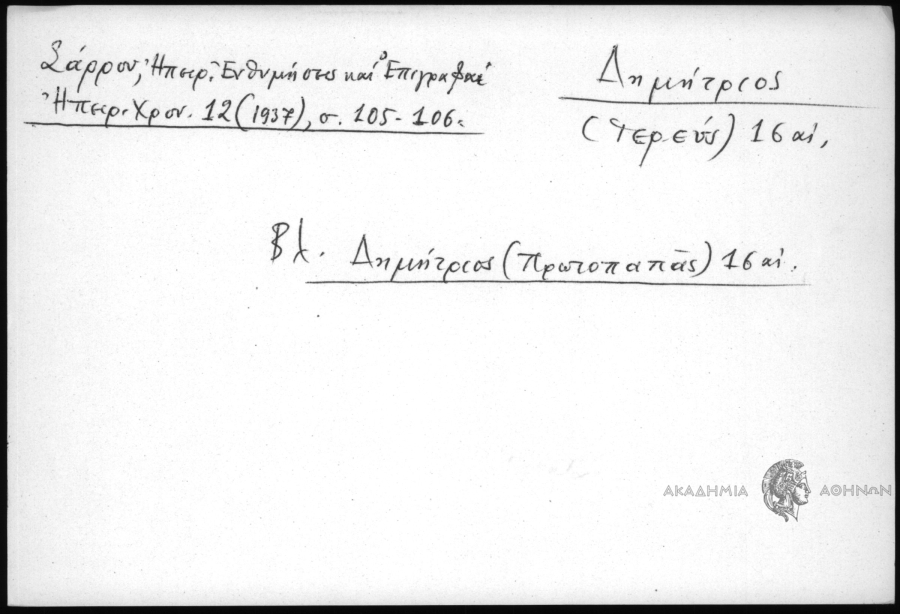 Σάρρου, Ἠπειρ. Ἐνθυμήσεις καὶ Ἐπιγραφαὶ
Ἠπειρ. Χρον. 12 (1937), σ. 105-106.
Δημήτριος
(Ἱερεύς) 16 αἰ.
Βλ. Δημήτριος (Πρωτοπαπᾶς) 16 αἰ.
ΑΚΑΔΗΜΙΑ ΑΘΗΝΩΝ